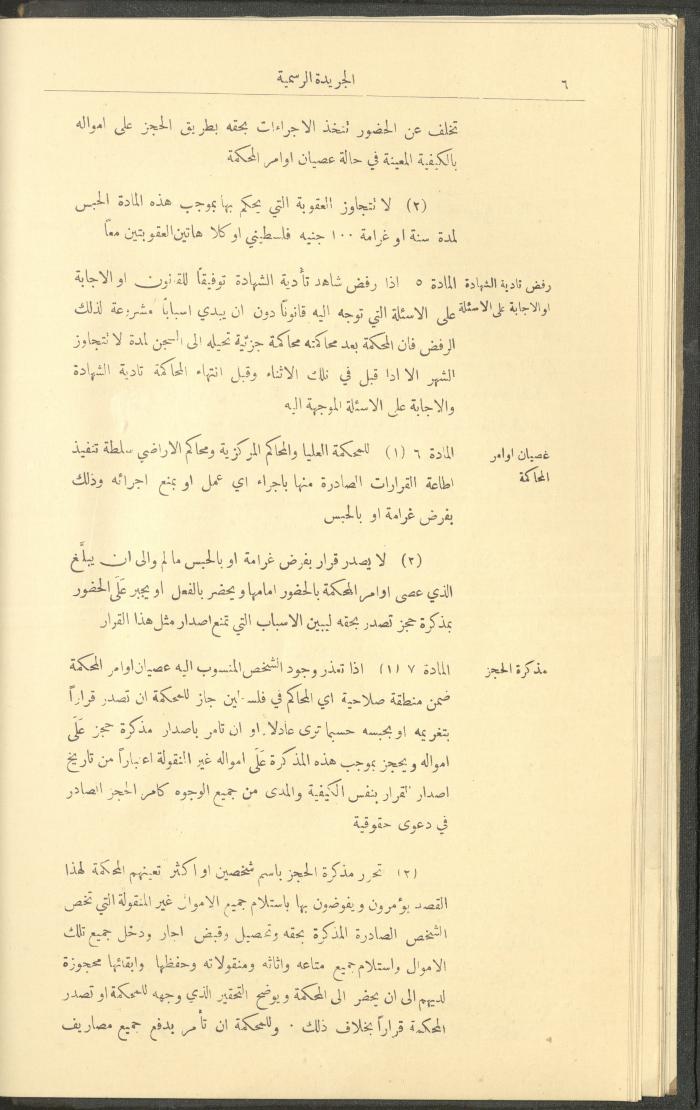 ٦
الجريدة الرسمية
تخلف عن الحضور تتخذ الاجراءات بحقه بطريق الحجز على امواله
بالكيفية المعينة في حالة عصيان اوامر المحكمة
(٢) لا تتجاوز العقوبة التي يحكم بها بموجب هذه المادة الحبس
لمدة سنة او غرامة ١٠٠ جنيه فلسطيني او كلا هاتين العقوبتين معاً
رفض تادية الشهادة
او الاجابة على الاسئلة
المادة ٥ اذا رفض شاهد تأدية الشهادة توفيقاً للقانون او الاجابة
على الاسئلة التي توجه اليه قانوناً دون ان يبدي اسباباً مشروعة لذلك
الرفض فان المحكمة بعد محاكمته محاكمة جزئية تحيله الى السجن لمدة لا تتجاوز
الشهر الا اذا قبل في تلك الاثناء وقبل انتهاء المحاكمة تادية الشهادة
والاجابة على الاسئلة الموجهة اليه
عصيان اوامر
المحاكمة
المادة ٦ (١) للمحكمة العليا والمحاكم المركزية ومحاكم الاراضي سلطة تنفيذ
اطاعة القرارات الصادرة منها باجراء اي عمل او بمنع اجرائه وذلك
بفرض غرامة او بالحبس
(٢) لا يصدر قرار بفرض غرامة او بالحبس ما لم والى ان يبلَّغ
الذي عصى اوامر المحكمة بالحضور امامها ويحضر بالفعل او يجبر عَلَى الحضور
بمذكرة حجز تصدر بحقه ليبين الاسباب التي تمنع اصدار مثل هذا القرار
مذكرة الحجز
المادة ٧ (١) اذا تعذر وجود الشخص المنسوب اليه عصيان اوامر المحكمة
ضمن منطقة صلاحية اي المحاكم في فلسطين جاز للمحكمة ان تصدر قراراً
بتغريمه او بحبسه حسبما ترى عادلا او ان تامر باصدار مذكرة حجز عَلَى
امواله ويحجز بموجب هذه المذكرة عَلَى امواله غير المنقولة اعتباراً من تاريخ
اصدار القرار بنفس الكيفية والمدى من جميع الوجوه كامر الحجز الصادر
في دعوى حقوقية
(٢) تحرر مذكرة الحجز باسم شخصين او اكثر تعينهم المحكمة لهذا
القصد يؤمرون ويفوضون بها باستلام جميع الاموال غير المنقولة التي تخص
الشخص الصادرة المذكرة بحقه وتحصيل وقبض اجار ودخل جميع تلك
الاموال واستلام جميع متاعه واثاثه ومنقولاته وحفظها وابقائها محجوزة
لديهم الى ان يحضر الى المحكمة ويوضح التحقير الذي وجهه للمحكمة او تصدر
المحكمة قراراً بخلاف ذلك . وللمحكمة ان تأمر بدفع جميع مصاريف